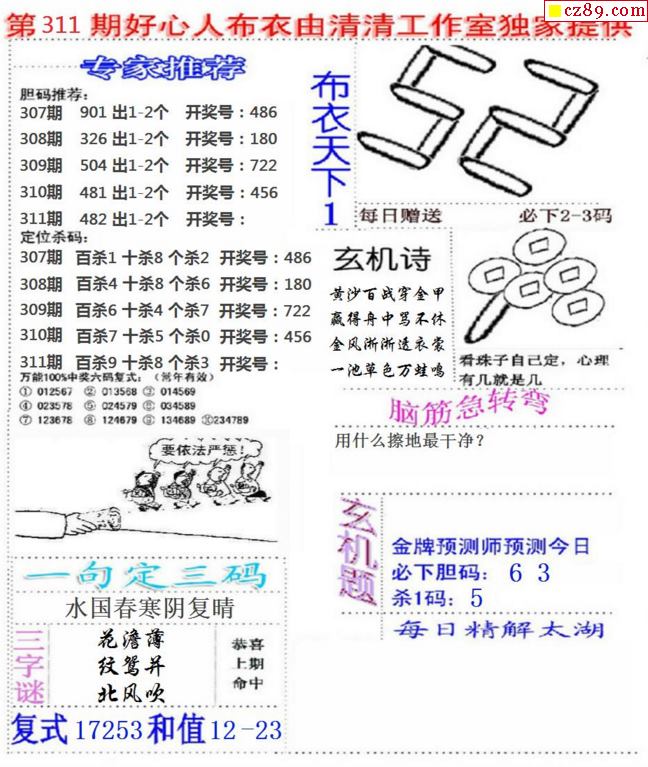 cz89.com
第311期好心人布衣由清清工作室独家提供
专家推荐
胆码推荐:
307期 901 出1-2个 开奖号:486
308期 326 出1-2个 开奖号:180
309期 504 出1-2个 开奖号:722
310期 481 出1-2个 开奖号:456
311期 482 出1-2个 开奖号:
定位杀码:
307期 百杀1 十杀8 个杀2 开奖号:486
308期 百杀4 十杀8 个杀6 开奖号:180
309期 百杀6 十杀4 个杀7 开奖号:722
310期 百杀7 十杀5 个杀0 开奖号:456
311期 百杀9 十杀8 个杀3 开奖号:
万能100%中奖六码复式:(常年有效)
① 012567 ② 013568 ③ 014569
④ 023578 ⑤ 024579 ⑥ 034589
⑦ 123678 ⑧ 124679 ⑨ 134689 ⑩234789
要依法严惩!
一句定三码
水国春寒阴复晴
三字谜
花澹薄
纹鸳并
北风吹
恭喜
上期
命中
复式17253和值12-23
布衣天下1
52
每日赠送 必下2-3码
玄机诗
黄沙百战穿金甲
赢得舟中骂不休
金风渐渐透衣裳
一池草色万蛙鸣
看珠子自己定，心理
有几就是几
脑筋急转弯
用什么擦地最干净?
玄机题
金牌预测师预测今日
必下胆码: 6 3
杀1码: 5
每日精解太湖